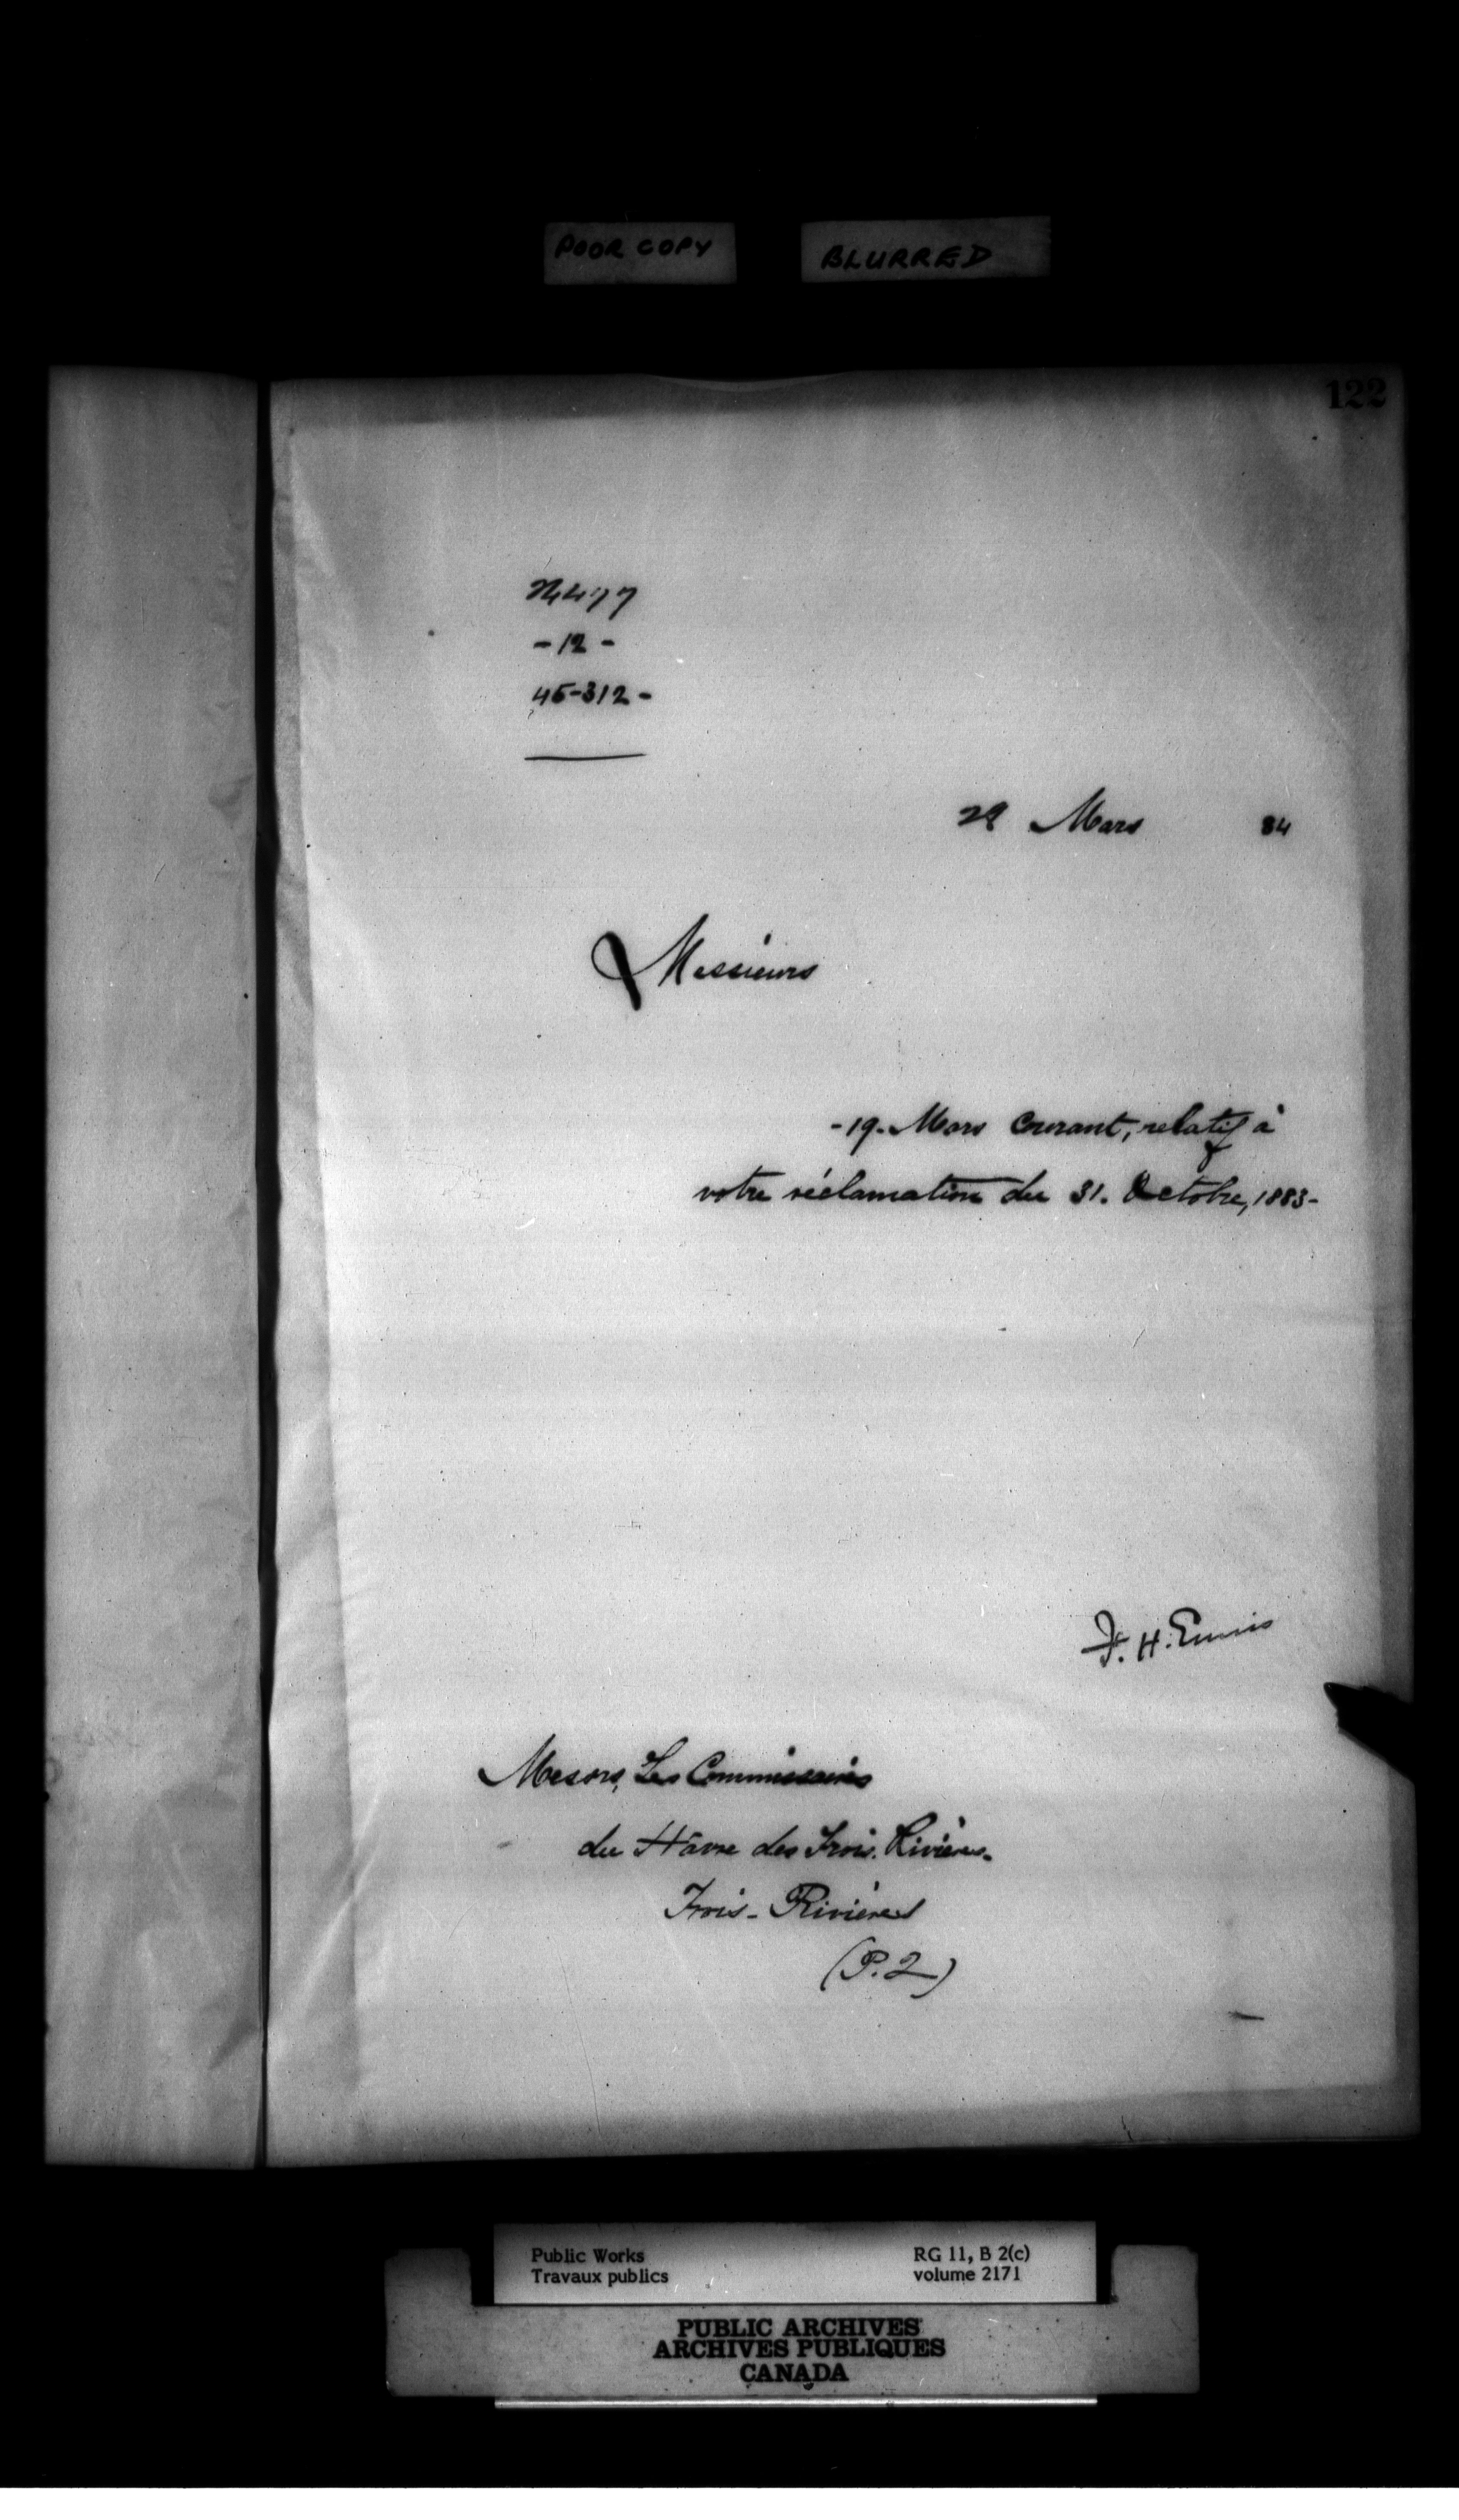 POOR COPY BLURRED
122
24477
- 12 -
45-312 -
28 Mars 84
Messieurs
- 19 - Mars courant, relatif à
votre réclamation du 31. Octobre, 1883 -
F. H. Ennis
Messrs, Les Commissaires
du Hâvre des Trois. Rivières -
Trois - Rivières
(P. 2)
Public Works RG 11, B 2(c)
Travaux publics volume 2171
PUBLIC ARCHIVES
ARCHIVES PUBLIQUES
CANADA